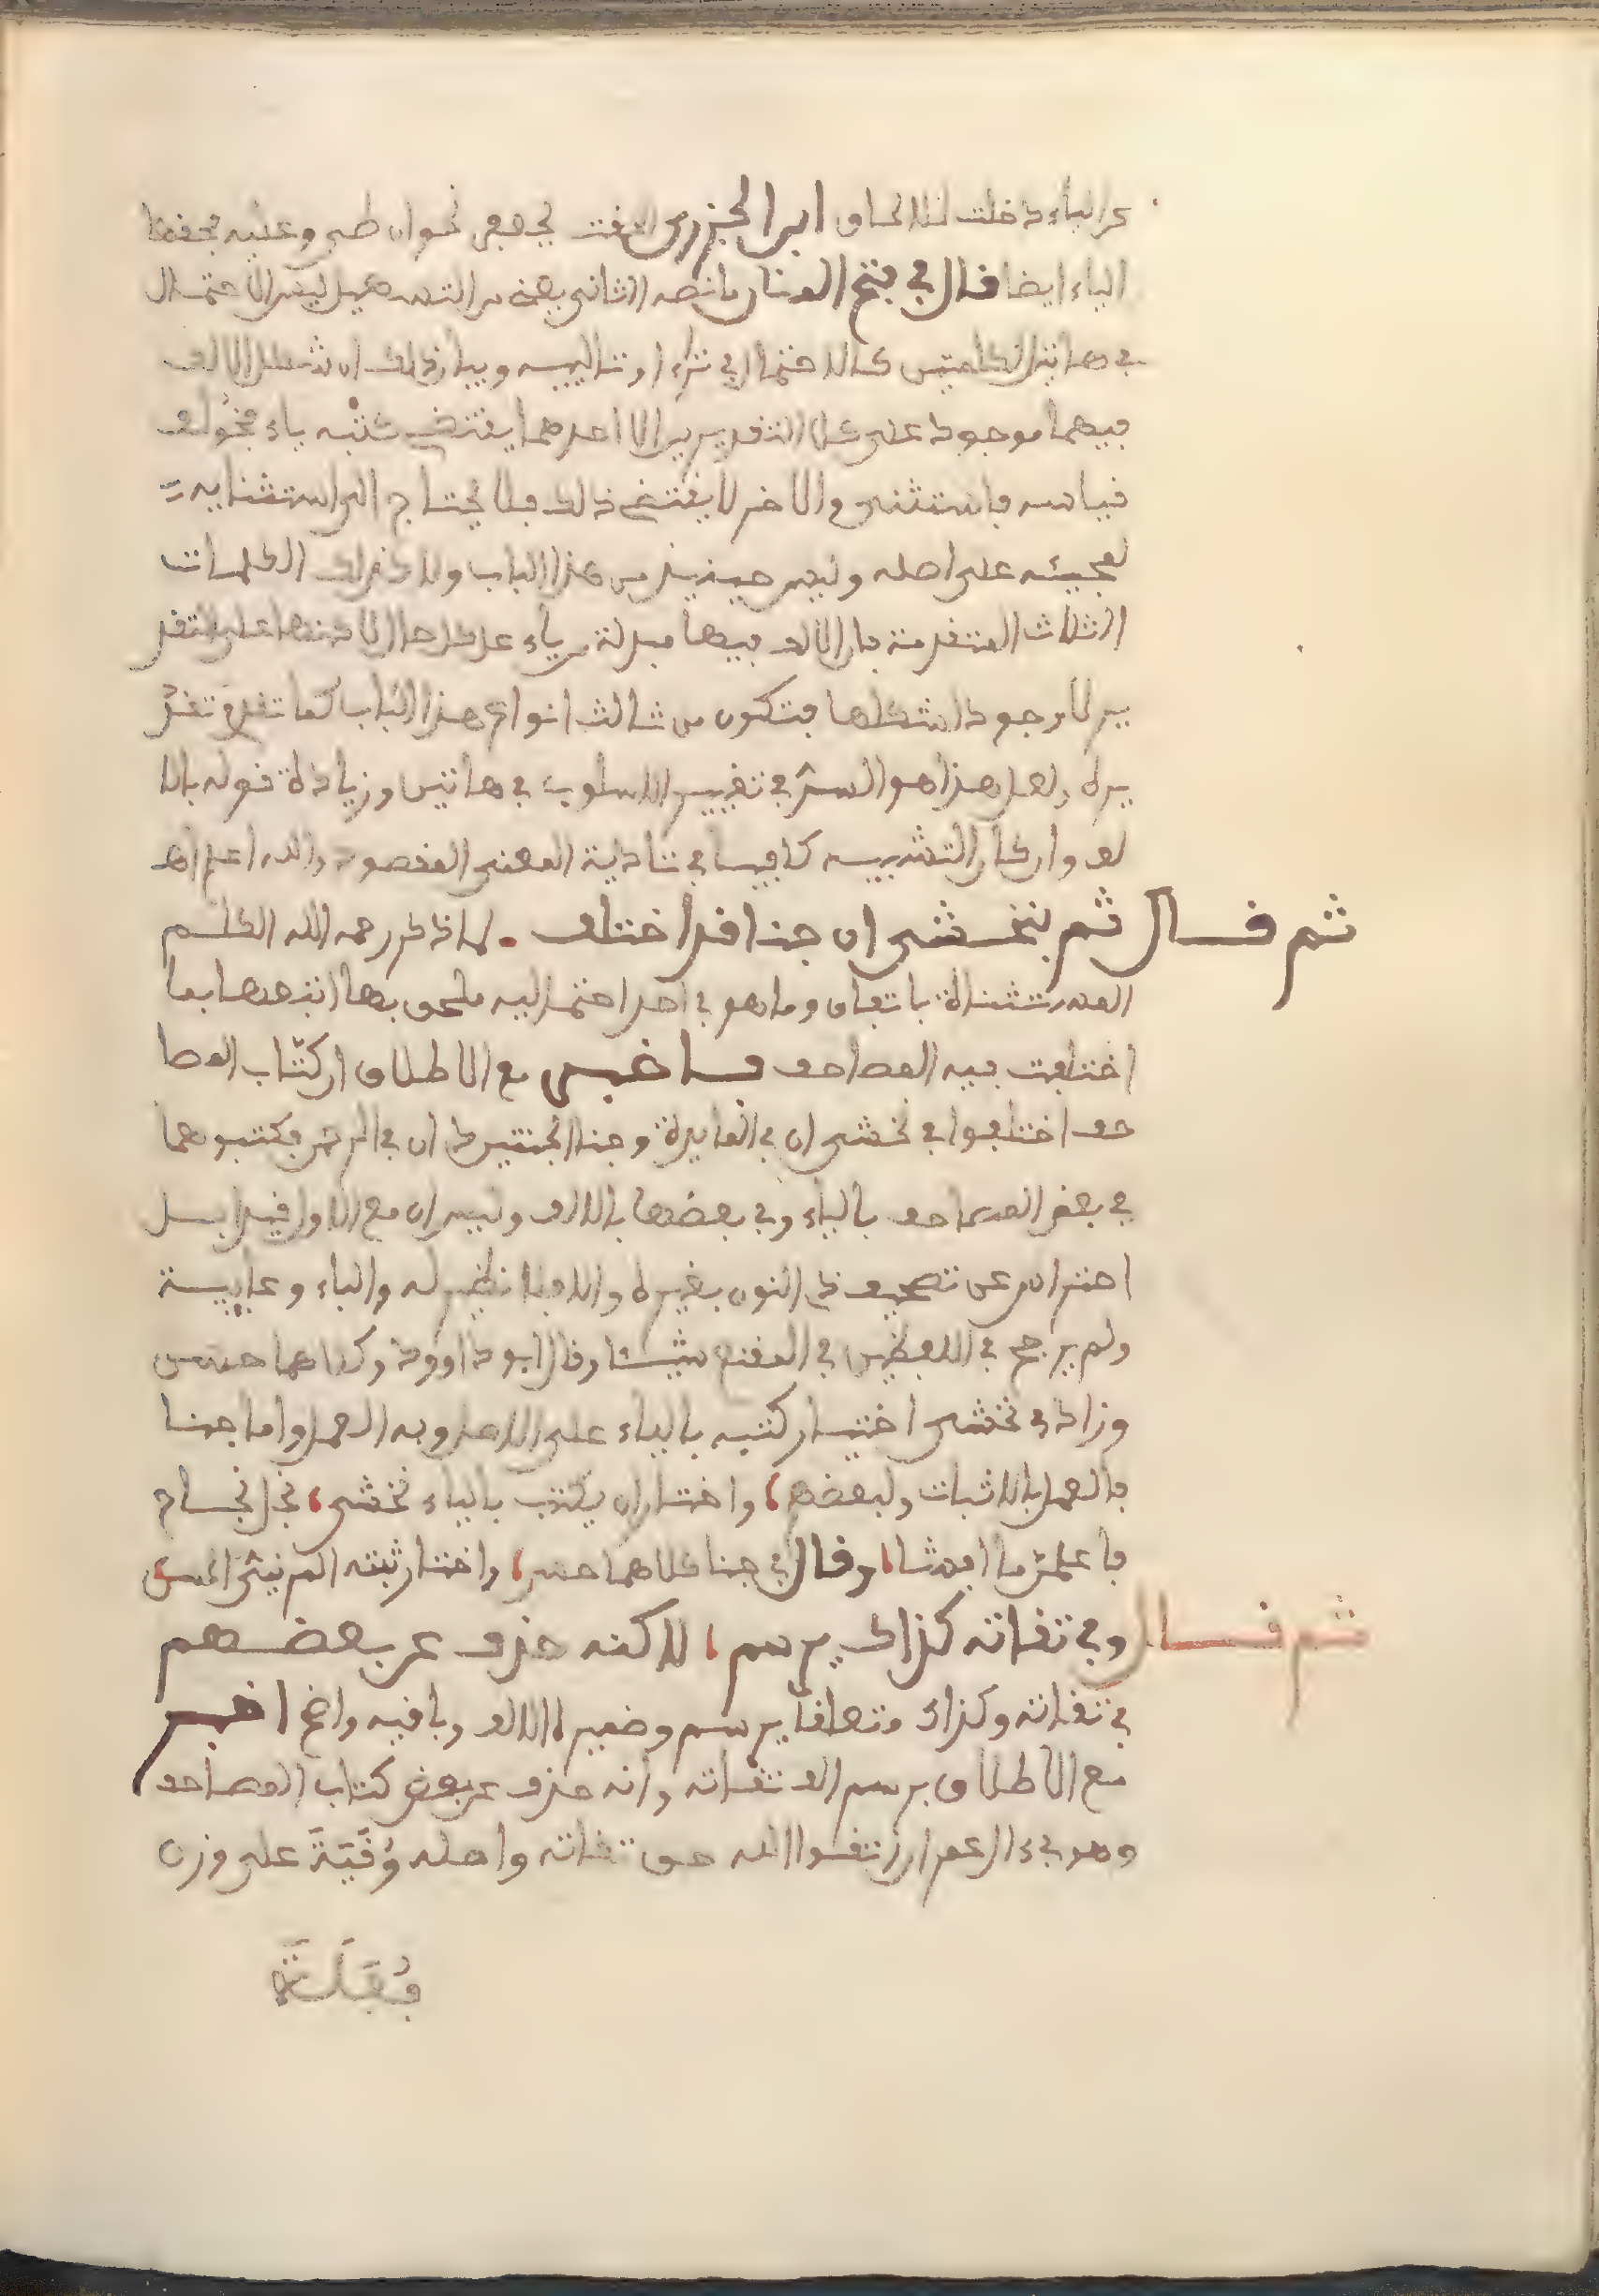 عن الياء دخلت للالحاق ابن الجزري الفت في بعض نحوان طبي وعليه محففها
الياء ايضا قال في فتح المنان ما نصه الثاني يفهم من التسهيل ليس الاحتمال
في هاتين الكلمتين كالاحتمال في تترا وتاليه وبيان ذلك ان شكل الالف
فيهما موجود على كلا التقديرين الا ان احدهما يقتضي كتبه ياء فخولف
قياسه فاستثني والاخر لا يقتضي ذلك فلا يحتاج الى استثنايه
لمجيئه على اصله وليس حينيذ من هذا الباب ولا كذلك الكلمات
الثلاث المتقدمة فان الالف فيها مبدلة من ياء على كلا احتمالاتها على التقد
يرين لا وجود لشكلها فتكون من ثالث انواع هذا الباب كما تقدم تقر
يره ولعل هذا هو السر في تغيير الاسلوب في هاتين وزيادة قوله بالا
لف وان كان التشبيه كافيا في تادية المعنى المقصود والله اعلم اهـ
ثم قال ثم بنخشى ان جنا قد اختلف . لما ذكر رحمه الله الكلم
المستثناة باتفاق وما هو في احد احتماليه ملحق بها اتبعها بما
اختلفت فيه المصاحف فاخبر مع الاطلاق ان كتاب المصا
حف اختلفوا في نخشى ان في المايدة وجنا الجنتين دان في الرحمن فكتبوهما
في بعض المصاحف بالياء وفي بعضها بالالف وليس ان مع الاول قيدا بل
احترازا عن تصحيف ذي النون بغيره والا فلا نظير له والياء وعليه
ولم يرجح في اللفظين في المقنع شيئا وقال ابو داوود وكلاهما حسن
وزاد في نخشى اختيار كتبه بالياء على الاصل وبه العمل واما جنا
فالعمل بالاثبات ولبعضهم، واختار ان يكتب بالياء نخشى، نجل نجاح
فاعلمن ما افشا، وقال في جنا كلاهما حسن، واختار ثبته المرنيشي الحسن
ثم قال وفي تقاته كذاك يرسم، لاكنه حذف عن بعضهم
في تقاته وكذاك متعلقا يرسم وضميره الالف وباقيه واضح اخبر
مع الاطلاق برسم الف تقاته وانه حذف عن بعض كتاب المصاحف
وهو في ءال عمران اتقوا الله حق تقاته واصله وُقَيَةً على وزن
فُعَلَةً